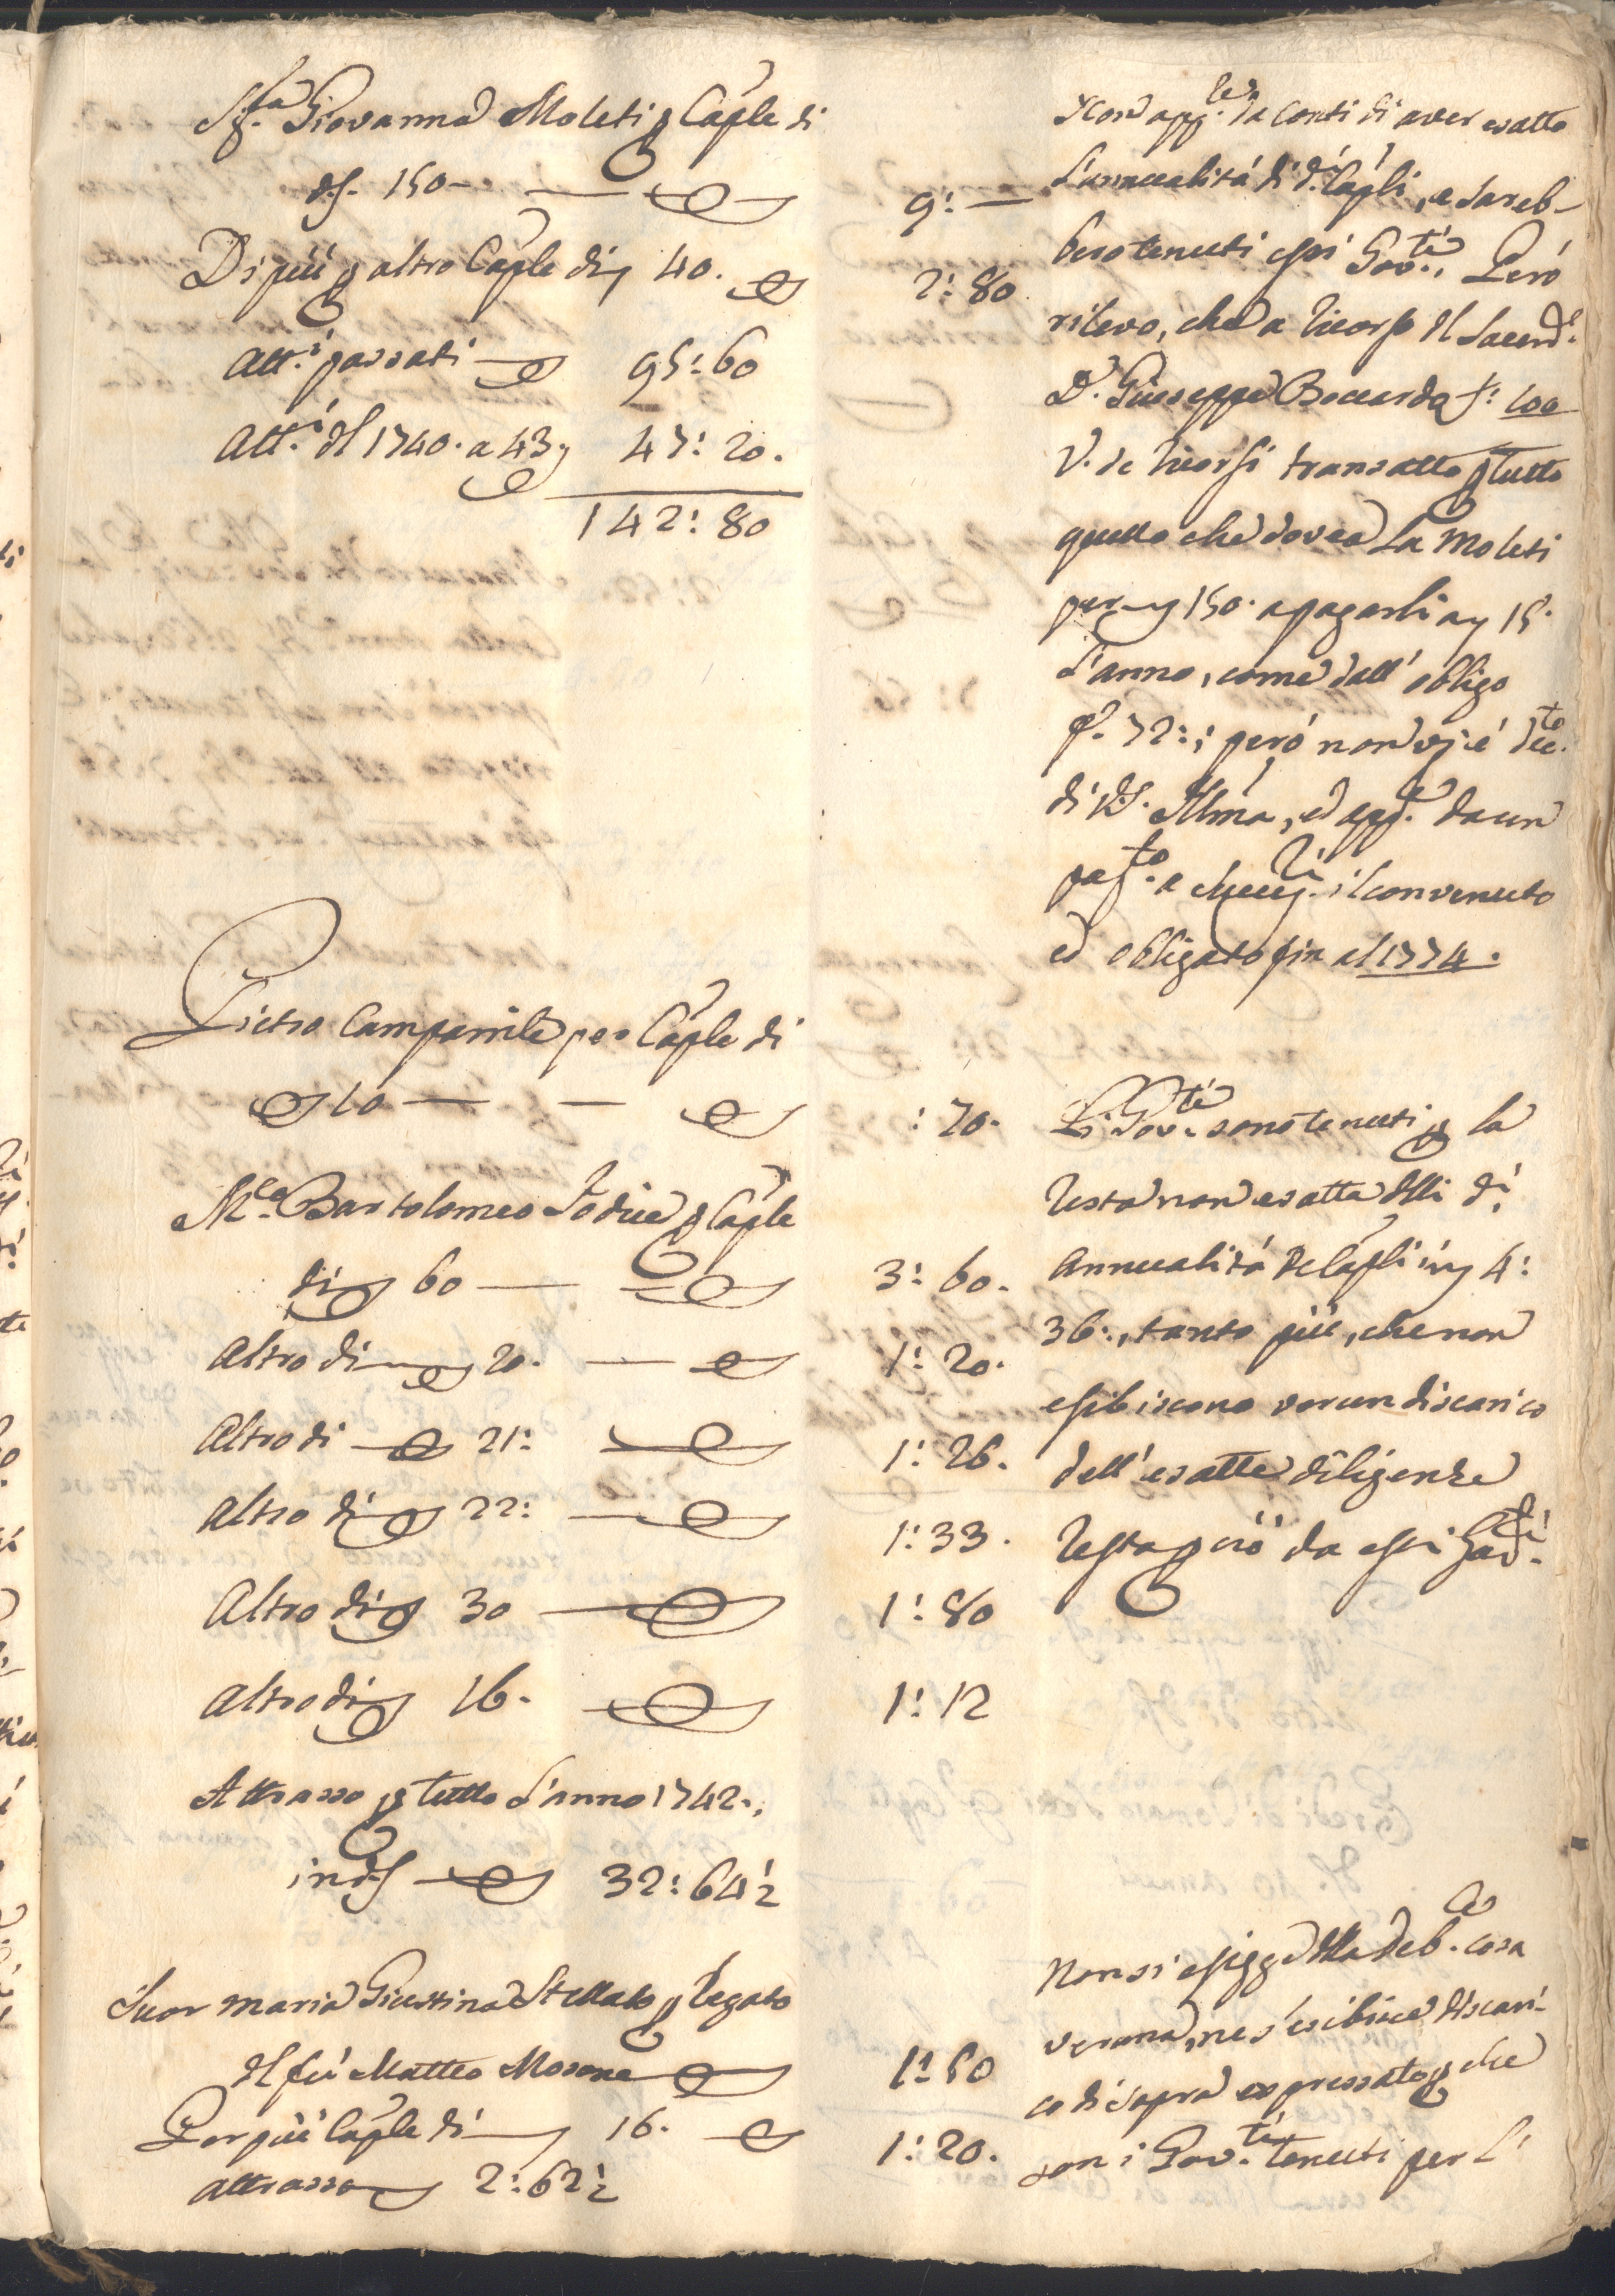 Sig.ra Giovanna Moleti p Cap̃le di
d.i 150 —
Di più p altro Cap̃le di 40.
Att.i passati 95: 60
Att.i dl 1740. a 43, 47: 20.
142: 80
Pietro Campanile per Cap̃le di
10 —
M.co Bartolomeo Jodice p Cap̃le
di 60 —
Altro di 20. —
Altro di 21:
Altro di 22:
Altro di 30
Altro di 16.
Attrasso p tutto l'anno 1742.,
in d.i 32: 64½
Suor Maria Giustina Stellato p legato
dl fù Matteo Mosone
Per più Cap̃le di 16.
attrasso 2: 62½
9: —
2: 80
: 70.
3: 60.
1: 20.
1: 26.
1: 33.
1: 80
1: 12
1: 50
1: 20.
non app.e da conti di aver esatto
l'annualità di d.i Cap̃li, e sareb-
bero tenuti essi Gov.ti, Però
rilevo, che a ricorso dl Sacerd.e
D. Giuseppe Boccarda f: 100
V. se ricorsi transatto p tutto
quello che dovea la Moleti
per 150. a pagarli a 15.
l'anno, come dall' obligo
f. 72:; però non vi è
di V.S. Ill̃ma, ed app.e da un
pag.to a il convenuto
ed obligato fin al 1774.
Li Gov.ti sono tenuti p la
resta non esatta dlli di
Annualità de Cap̃li in 4:
36:, tanto più, che non
esibiscono verun discarico
dell' esatte diligenze
resta p ciò da essi Gov.ti
Non si esigge dlla deb.ce cosa
veruna, ne s' esibisce discari-
co di sopra espressato p che
son i Gov.ti tenuti per l'